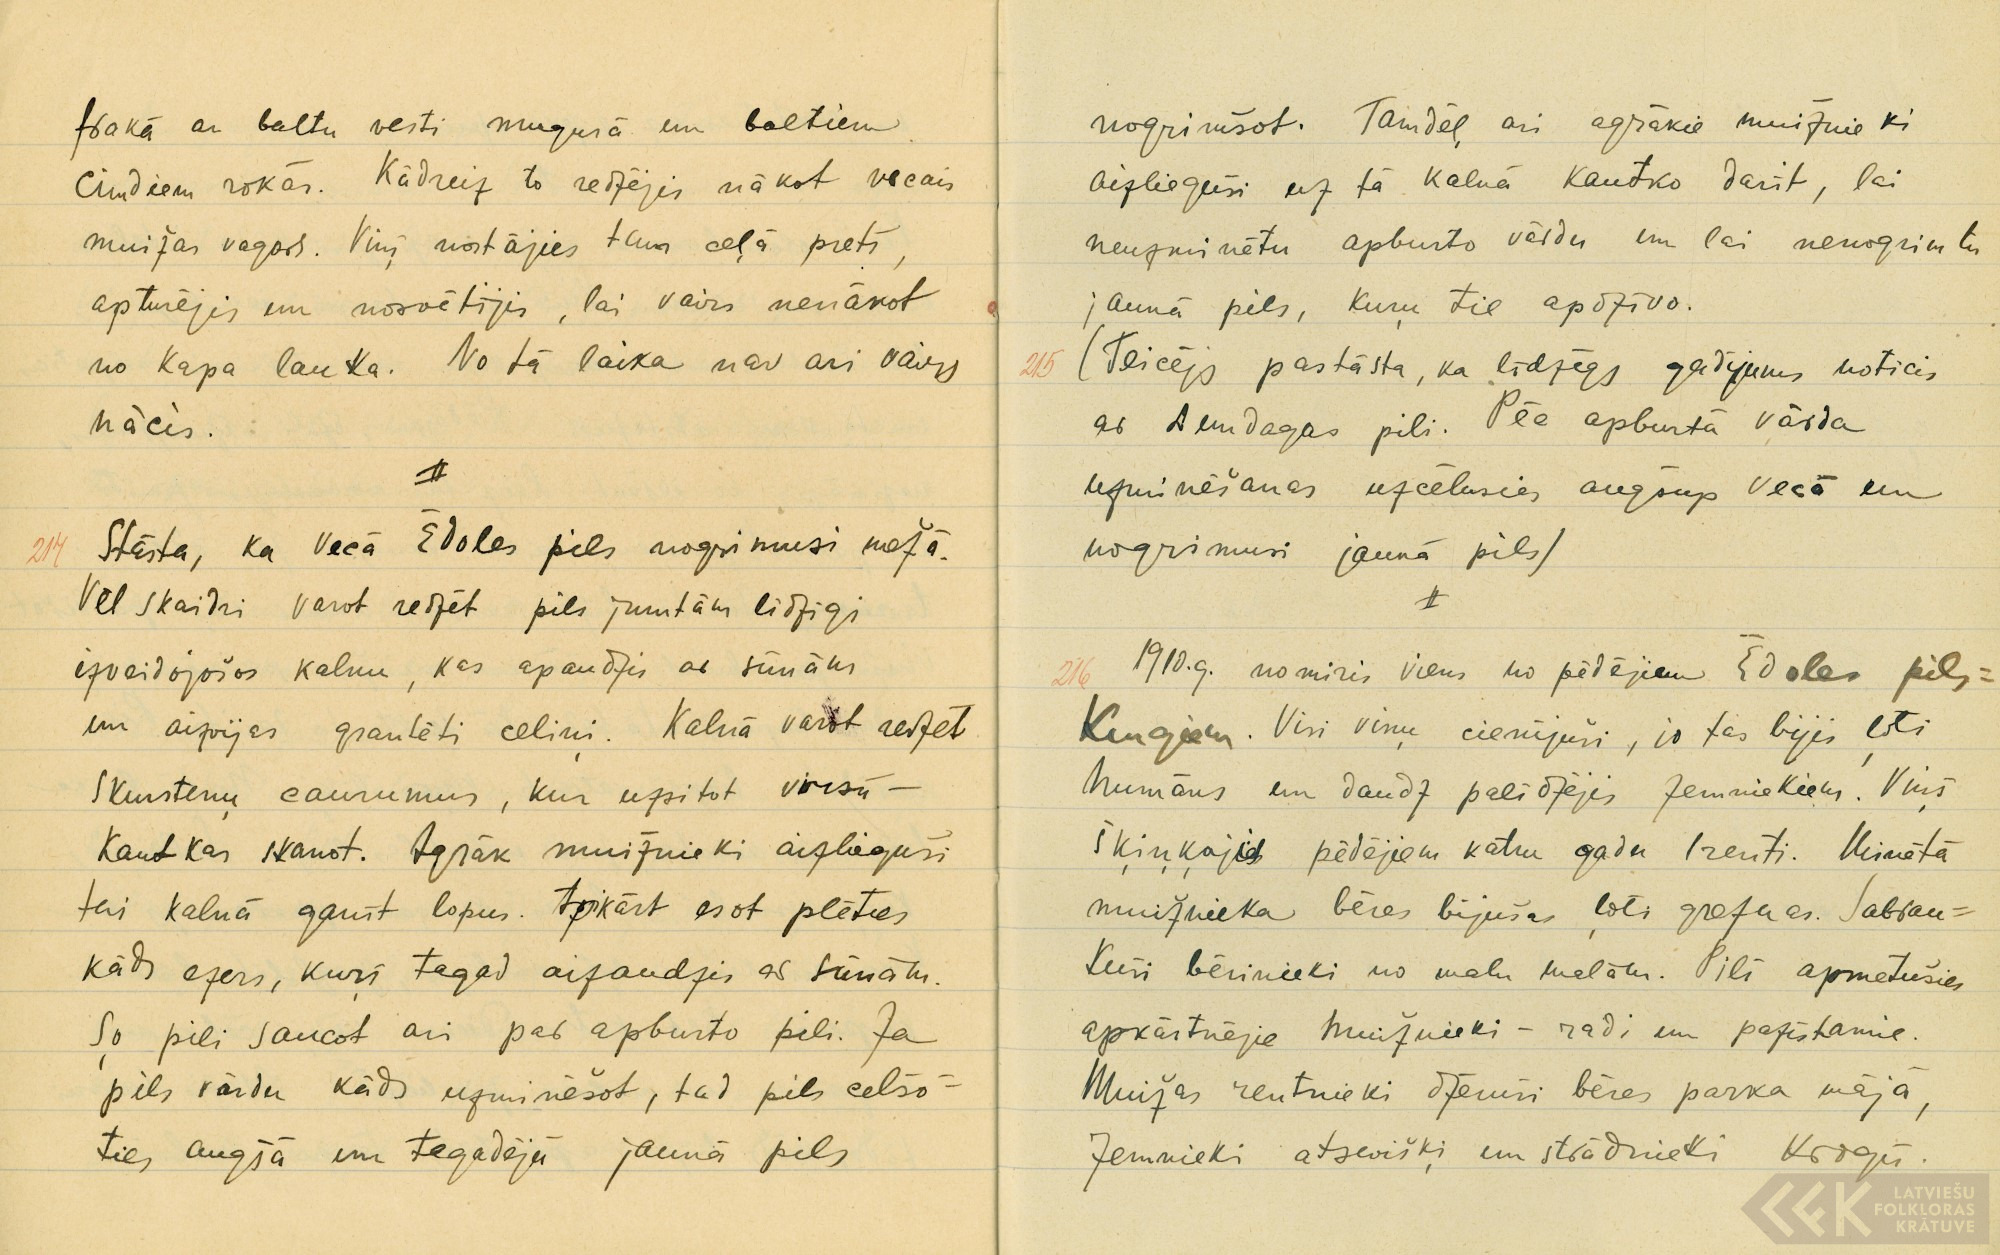 frakā ar baltu vesti mugurā un baltiem
cimdiem rokās. Kādreiz to redzējis nākot vecais
muižas vagars. Viņš nostājies tam ceļā pretī,
apturējis un nosvētījis, lai vairs nenākot
no kapa lauka. No tā laika nav arī vairs
nācis.
214 Stāsta, ka vecā Ēdoles pils nogrimusi mežā.
Vēl skaidri varot redzēt pils jumtam līdzīgi
izveidojošos kalnu, kas apaudzis ar sūnām
un aizvijas grantēti celiņi. Kalnā varot redzēt
skursteņu caurumus, kur uzsitot virsū –
kautkas skanot. Agrāk muižnieki aizlieguši
tai kalnā ganīt lopus. Apkārt esot plēties
kāds ezers, kurš tagad aizaudzis ar sūnām.
Šo pili saucot arī par apburto pili. Ja
pils vārdu kāds uzminēšot, tad pils celšo-
ties augšā un tagadējā jaunā pils
nogrimšot. Tamdēļ arī agrākie muižnieki
aizlieguši uz tā kalnā kautko darīt, lai
neuzminētu apburto vārdu un lai nenogrimtu
jaunā pils, kuru tie apdzīvo.
215 (Teicējs pastāsta, ka līdzīgs gadījums noticis
ar Dundagas pili. Pēc apburtā vārda
uzminēšanas uzcēlusies augšup vecā un
nogrimusi jaunā pils)
216 1910.g. nomiris viens no pēdējiem Ēdoles pils=
kungiem. Visi viņu cienījuši, jo tas bijis ļoti
humāns un daudz palīdzējis zemniekiem. Viņš
šķiņķojis pēdējiem katru gadu 1 renti. Minētā
muižnieka bēres bijušas ļoti greznas. Sabrau=
kuši bērinieki no malu malām. Pilī apmetušies
apkārtnējie muižnieki – radi un pazīstamie.
Muižas rentnieki dzēruši bēres parka mājā,
zemnieki atsevišķi un strādnieki krogū.
LATVIEŠU
FOLKLORAS
KRĀTUVE